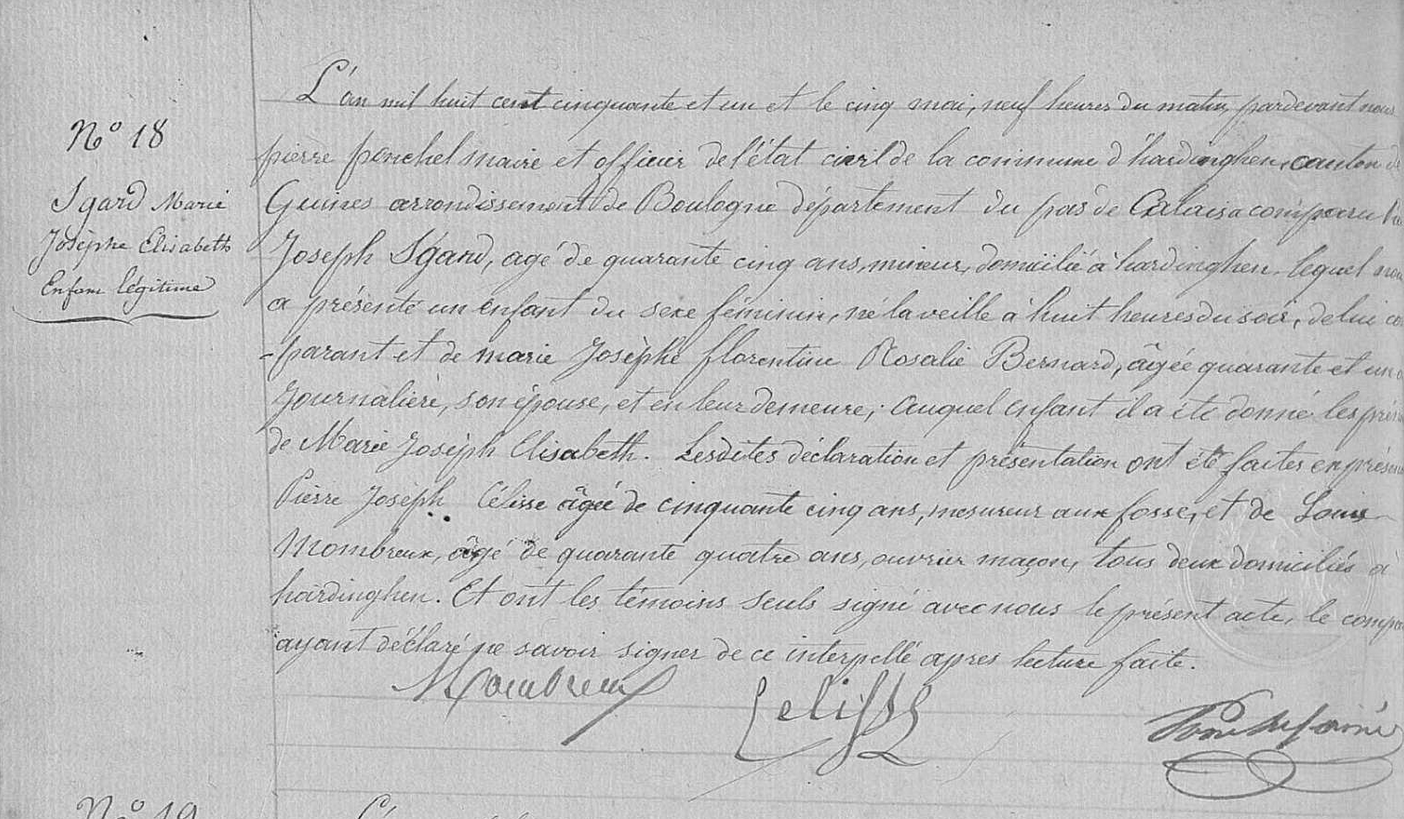 N° 18
Sgard Marie
Josèphe Elisabeth
Enfant légitime
L'an mil huit cent cinquante et un et le cinq mai, neuf heures du matin, pardevant nous
pierre ponchel maire et officier de l'état civil de la commune d'hardinghen, canton de
Guines arrondissement de Boulogne département du pas de Calais a comparu
Joseph Sgard, agé de quarante cinq ans, mineur, domicilié à hardinghen, lequel nous
a présenté un enfant du sexe féminin, né la veille à huit heures du soir, de lui com
-parant et de marie Josèphe florentine Rosalie Bernard, âgée quarante et un
Journalière, son épouse, et en leur demeure; auquel enfant il a été donné les
de Marie Joseph Elisabeth. Lesdites déclaration et présentation ont été faites en
Pierre Joseph Célisse âgée de cinquante cinq ans, mesureur aux fosse, et de Louis
Mombreux, âgé de quarante quatre ans, ouvrier maçon, tous deux domiciliés à
hardinghen. Et ont les témoins seuls signé avec nous le présent acte, le
ayant déclaré ne savoir signer de ce interpellé apres lecture faite.
Mombreux
Celisse
N° 19